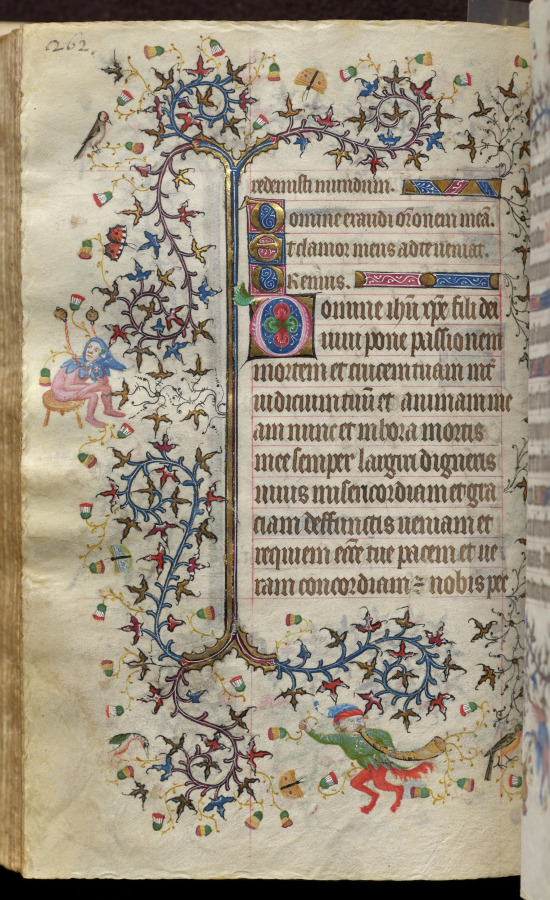 262.
redemisti mundum.
Domine exaudi oronem meā.
Et clamor meus ad te ueniat.
Oremus.
Domine ihū xpē fili dei
uiui pone passionem
mortem et crucem tuam int̄
iudicium tuū et animam me
am nunc et in hora mortis
mee semper largiri digneris
uiuis misericordiam et gra
ciam deffunctis ueniam et
requiem eccē tue pacem et ue
ram concordiam ⁊ nobis pec